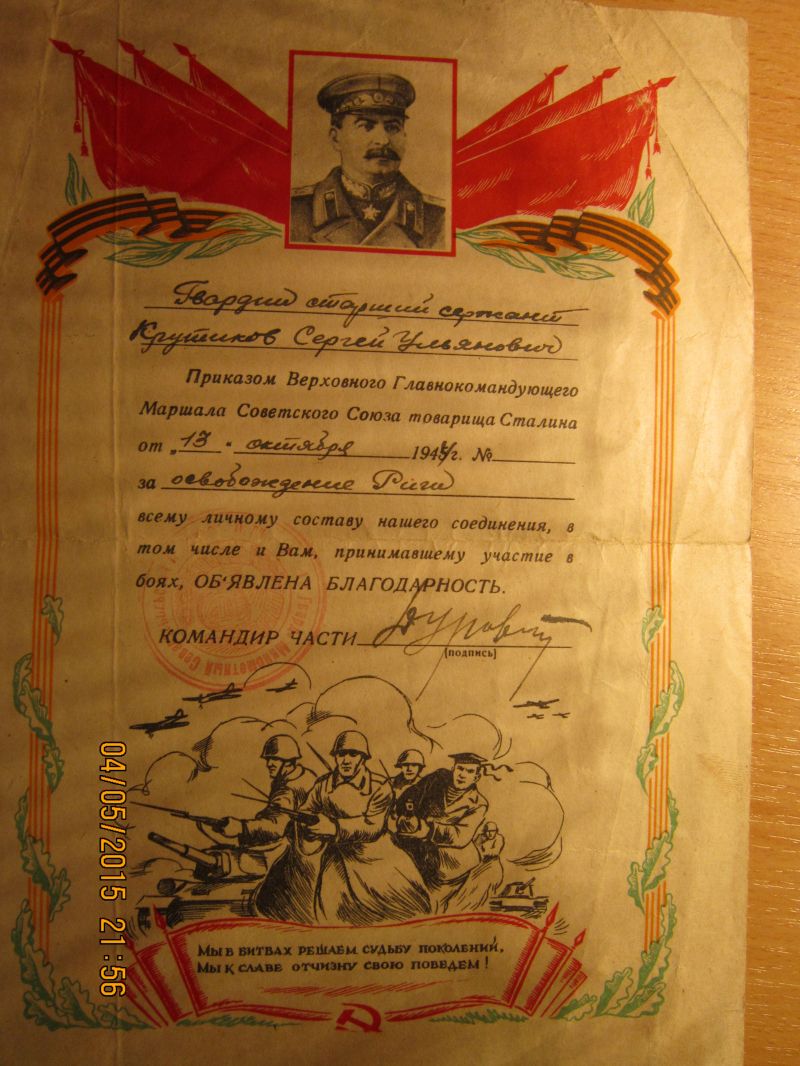 Гвардии старший сержант
Крутиков Сергей Ульянович
Приказом Верховного Главнокомандующего
Маршала Советского Союза товарища Сталина
от „13 “ октября 1944г. №
за освобождение Риги
всему личному составу нашего соединения, в
том числе и Вам, принимавшему участие в
боях, ОБ'ЯВЛЕНА БЛАГОДАРНОСТЬ.
КОМАНДИР ЧАСТИ
(подпись)
МЫ В БИТВАХ РЕШАЕМ СУДЬБУ ПОКОЛЕНИЙ,
МЫ К СЛАВЕ ОТЧИЗНУ СВОЮ ПОВЕДЕМ!
04/05/2015 21:56